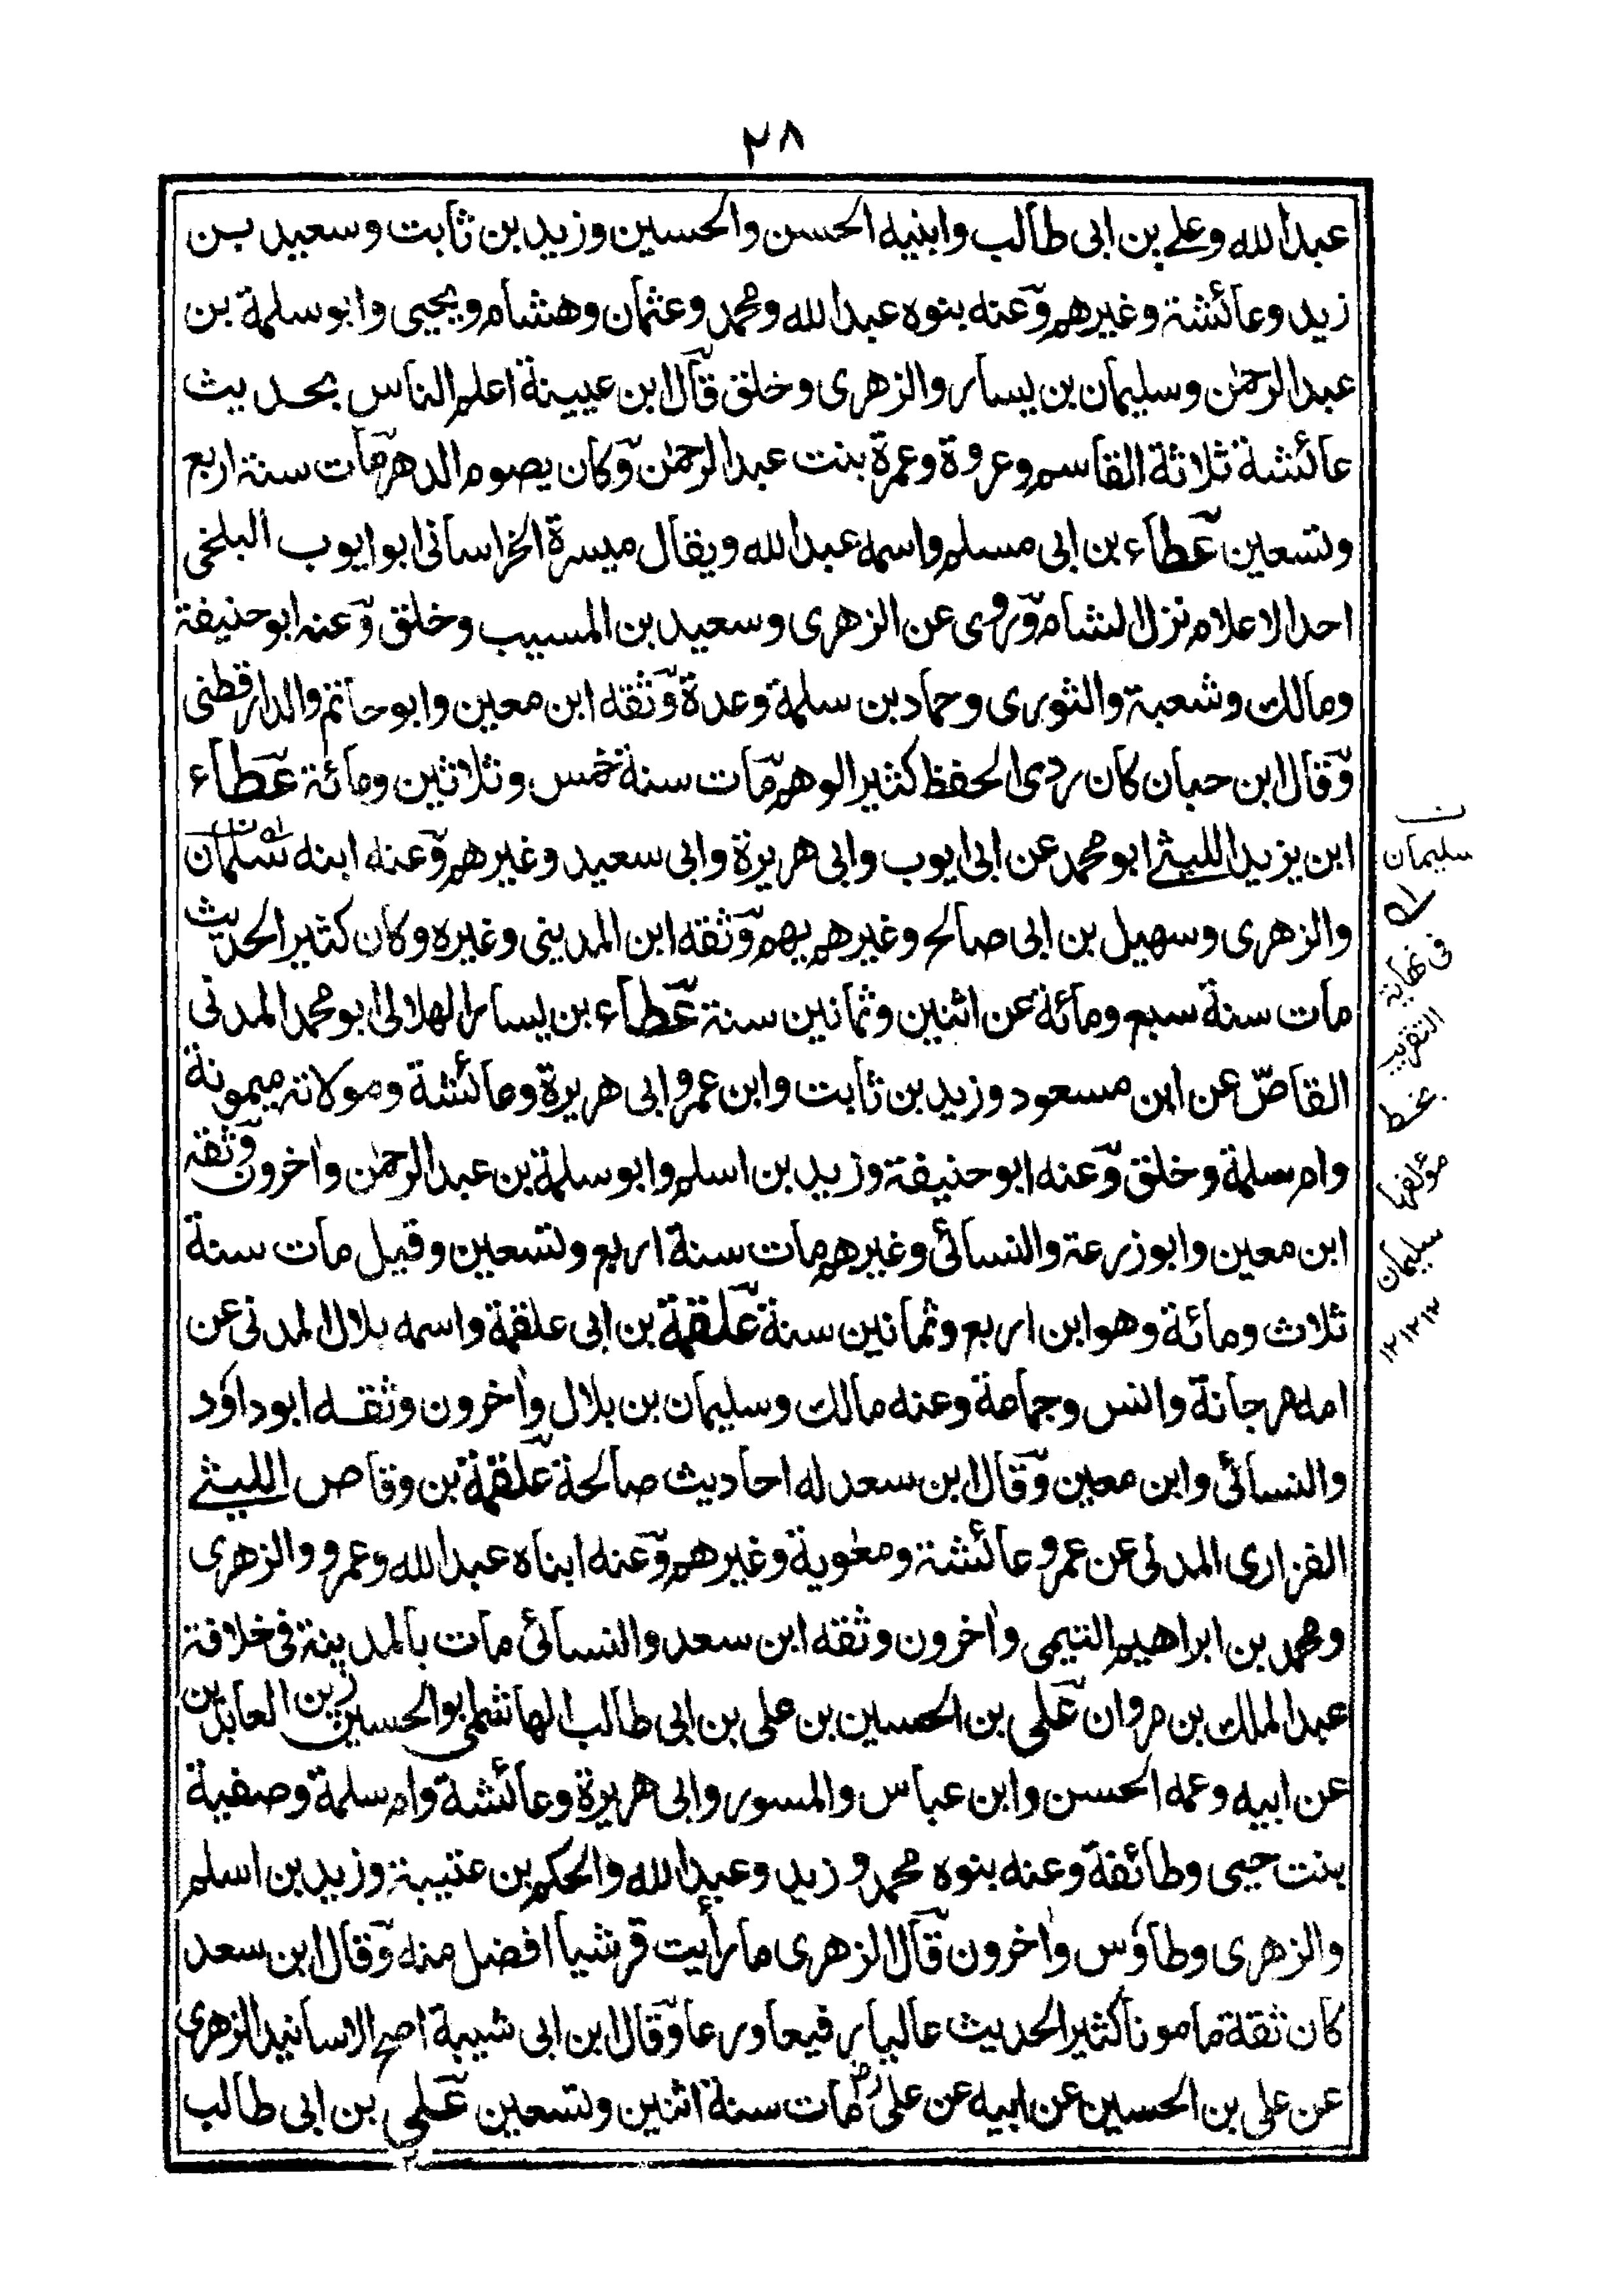 ٢٨
عبدالله وعلي بن ابى طالب وابنيه الحسن والحسين وزيد بن ثابت وسعيد بن
زيد وعائشة وغيرهم وعنه بنوه عبدالله ومحمد وعثمان وهشام ويحيى وابو سلمة بن
عبدالرحمٰن وسليمان بن يسار والزهرى وخلق قال ابن عيينة اعلم الناس بحديث
عائشة ثلاثة القاسم وعروة وعمرة بنت عبدالرحمٰن وكان يصوم الدهر مات سنة اربع
وتسعين عطاء بن ابى مسلم واسمه عبدالله ويقال ميسرة الخراسانى ابو ايوب البلخى
احد الاعلام نزل الشام وروى عن الزهرى وسعيد بن المسيب وخلق وعنه ابو حنيفة
ومالك وشعبة والثورى وحماد بن سلمة وعدة وثقه ابن معين وابو حاتم والدارقطنى
وقال ابن حبان كان ردى الحفظ كثير الوهم مات سنة خمس وثلاثين ومائة عطاء
ابن يزيد الليثے ابو محمد عن ابى ايوب وابى هريرة وابى سعيد وغيرهم وعنه ابنه سلمان
والزهرى وسهيل بن ابى صالح وغيرهم وثقه ابن المدينى وغيره وكان كثير الحديث
مات سنة سبع ومائة عن اثنين وثمانين سنة عطاء بن يسار الهلالى ابو محمد المدنى
القاصّ عن ابن مسعود وزيد بن ثابت وابن عمر وابى هريرة وعائشة ومولاته ميمونة
وام سلمة وخلق وعنه ابو حنيفة وزيد بن اسلم وابو سلمة بن عبدالرحمٰن واٰخرون وثقه
ابن معين وابو زرعة والنسائى وغيرهم مات سنة اربع وتسعين وقيل مات سنة
ثلاث ومائة وهو ابن اربع وثمانين سنة علقمة بن ابى علقمة واسمه بلال المدنى عن
امه مرجانة وانس وجماعة وعنه مالك وسليمان بن بلال واٰخرون وثقه ابو داؤد
والنسائى وابن معين وقال ابن سعد له احاديث صالحة علقمة بن وقاص الليثے
الفزارى المدنى عن عمر وعائشة ومعٰوية وغيرهم وعنه ابناه عبدالله وعمرو والزهرى
ومحمد بن ابراهيم التيمى واٰخرون وثقه ابن سعد والنسائى مات بالمدينة فى خلافة
عبدالملك بن مروان على بن الحسين بن على بن ابى طالب الهاشمى ابو الحسين زين العابدين
عن ابيه وعمه الحسن وابن عباس والمسور وابى هريرة وعائشة وام سلمة وصفية
بنت حيى وطائفة وعنه بنوه محمد وزيد وعبدالله والحكم بن عتيبة وزيد بن اسلم
والزهرى وطاؤس واٰخرون قال الزهرى ما رأيت قرشيا افضل منه وقال ابن سعد
كان ثقة مامونا كثير الحديث عاليا رفيعا ورعا وقال ابن ابى شيبة اصح الاسانيد الزهرى
عن على بن الحسين عن ابيه عن على مات سنة اثنين وتسعين على بن ابى طالب
سليمان
فى نهاية
التقريب
بخط
مولفها
سليمان
١٢١٢١٢